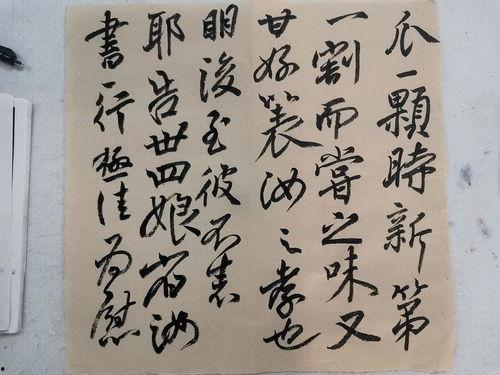 瓜一顆時新第
一割而嘗之味又
甘好汝之孝也
明後至彼不悉
耶告卅四娘省汝
書一行極佳為慰